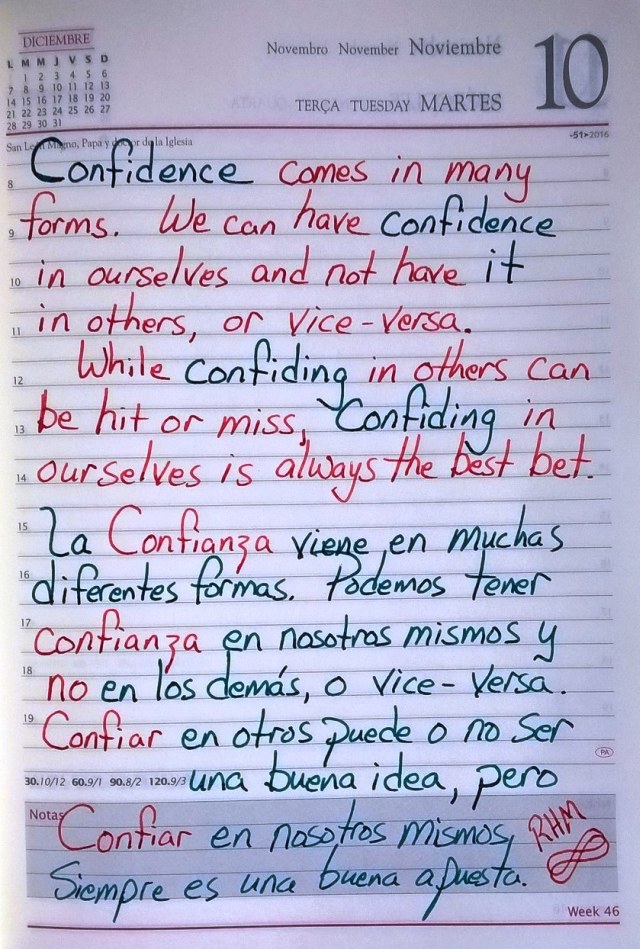 DICIEMBRE
L M M J V S D
1 2 3 4 5 6
7 8 9 10 11 12 13
14 15 16 17 18 19 20
21 22 23 24 25 26 27
28 29 30 31
Novembro November Noviembre
10
TERÇA TUESDAY MARTES
-51>2016
San León Magno, Papa y doctor de la Iglesia
8 Confidence comes in many
9 forms. We can have confidence
10 in ourselves and not have it
11 in others, or vice-versa.
12 While confiding in others can
13 be hit or miss, Confiding in
14 ourselves is always the best bet.
15 La Confianza viene en muchas
16 diferentes formas. Podemos tener
17 confianza en nosotros mismos y
18 no en los demás, o vice-versa.
19 Confiar en otros puede o no ser
PA
30.10/12 60.9/1 90.8/2 120.9/3 una buena idea, pero
Notas Confiar en nosotros mismos,
RHM
Siempre es una buena apuesta.
Week 46